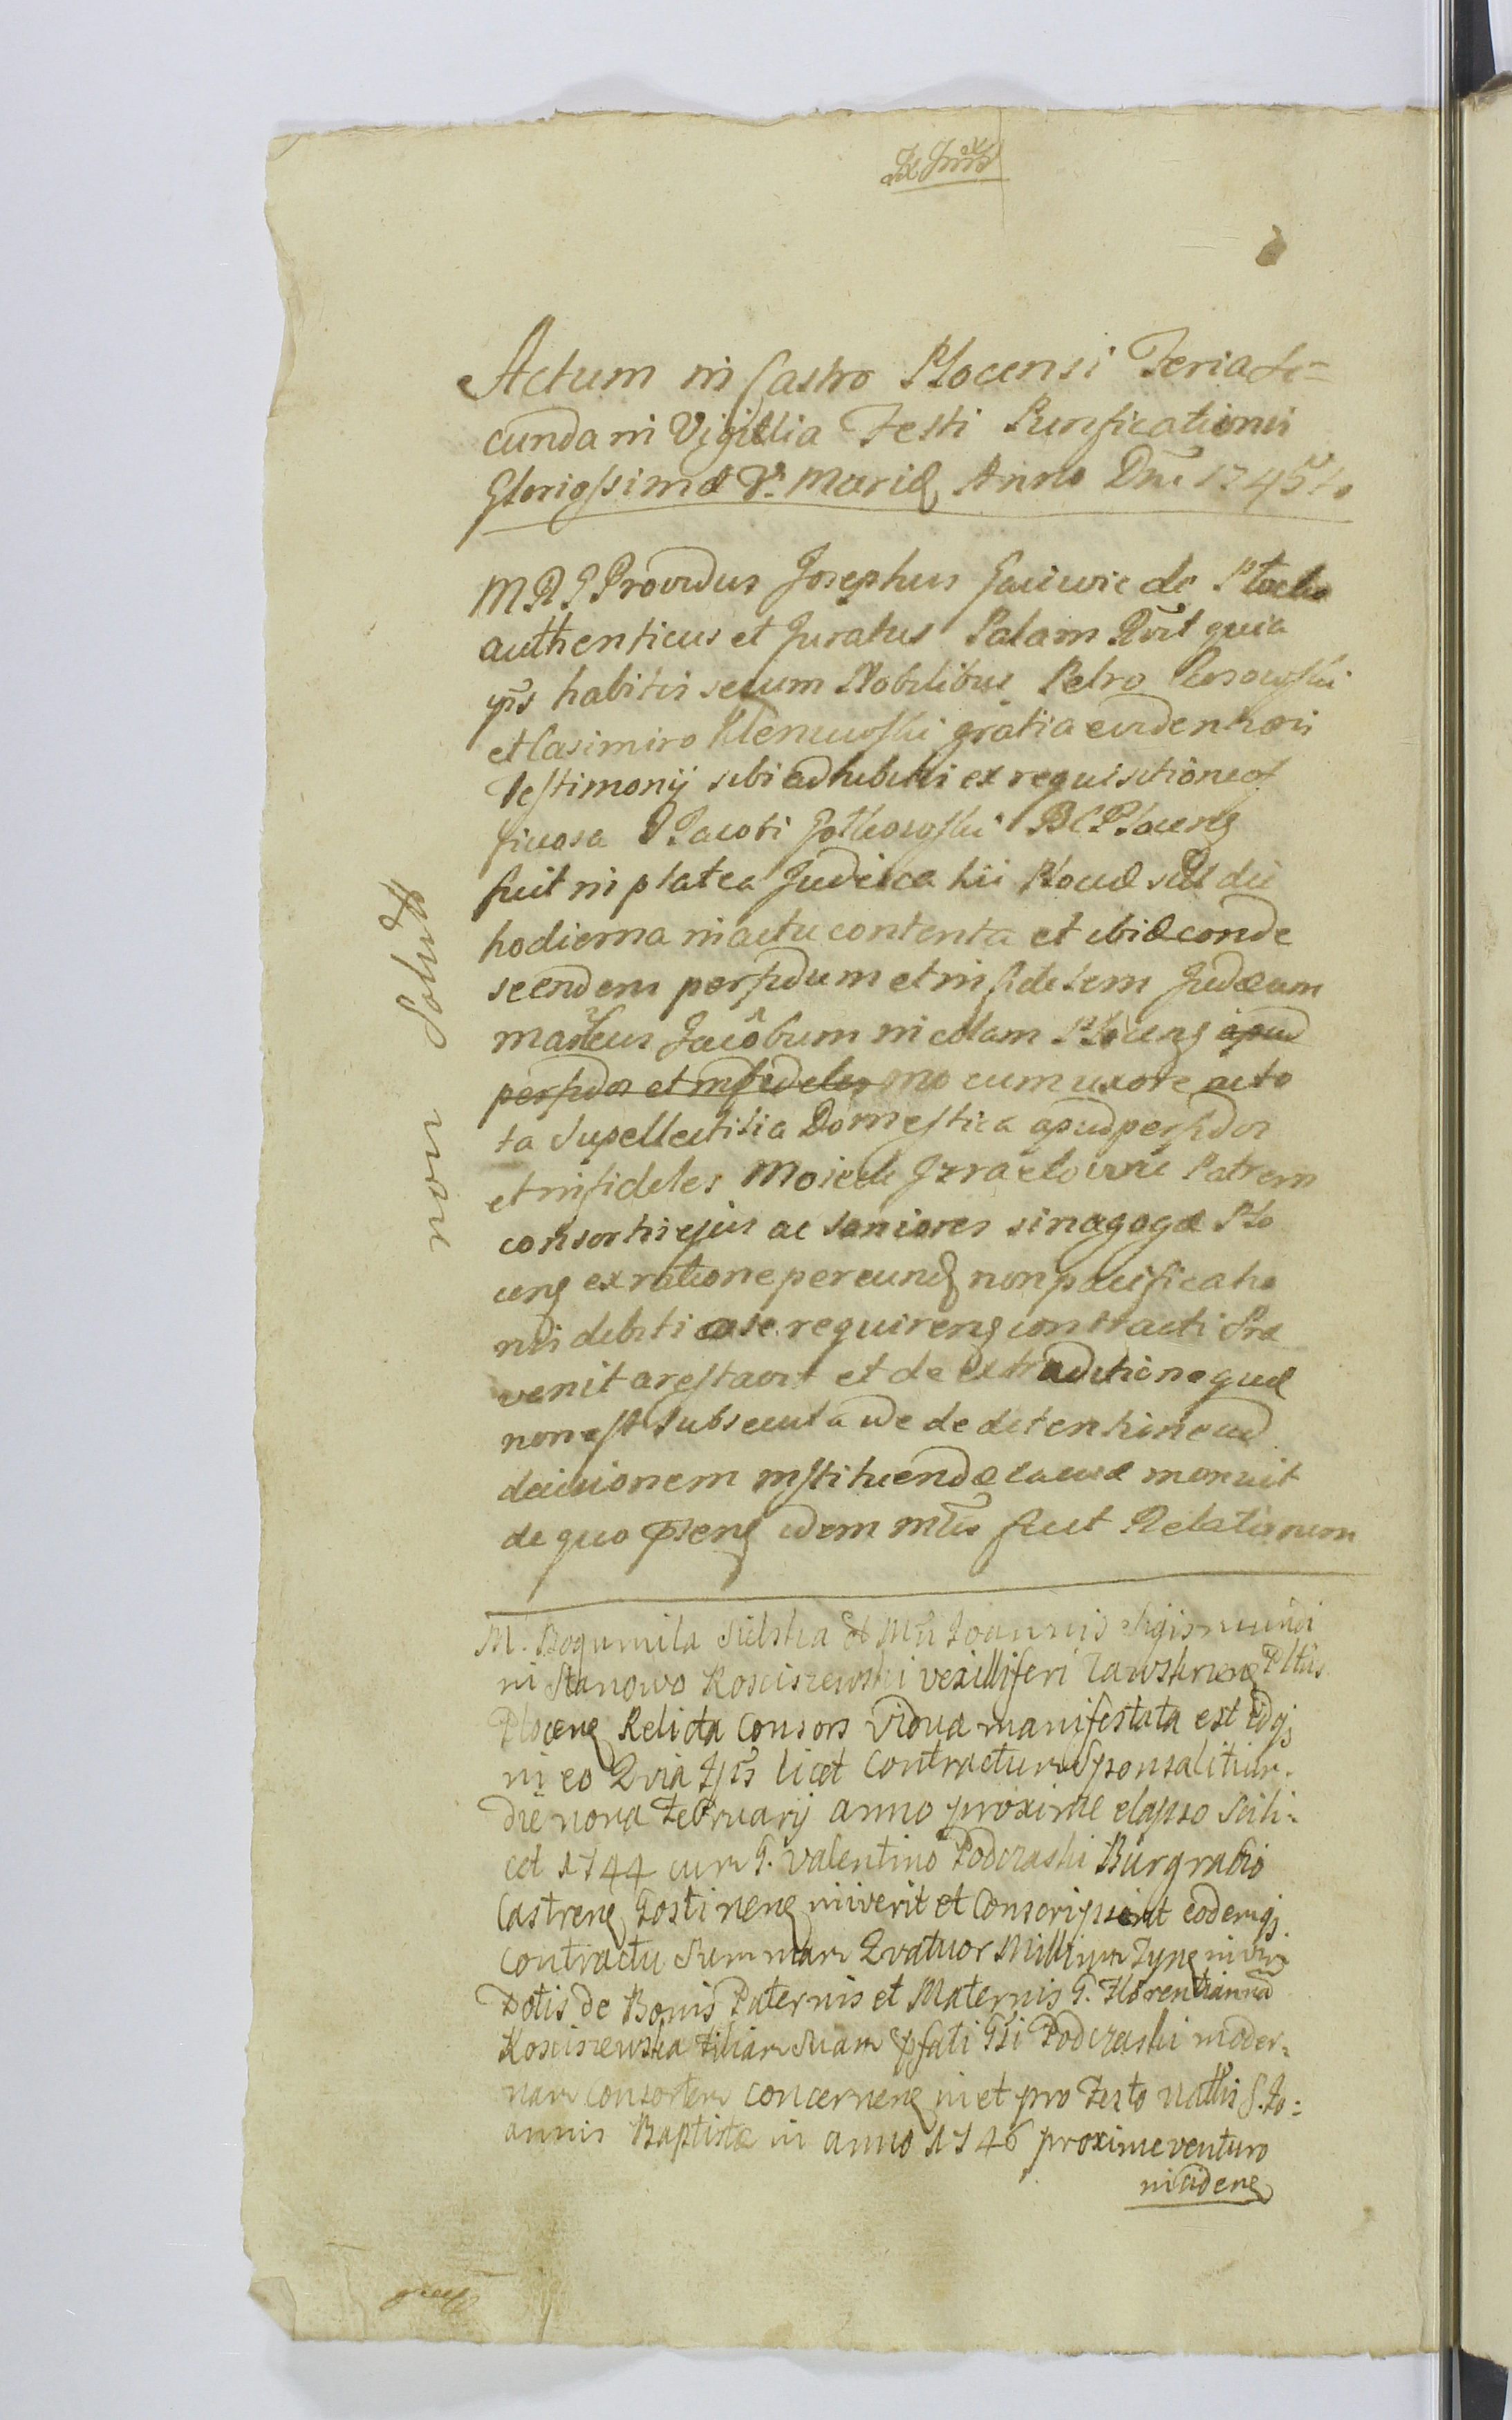 Actum in Castro Plocensi Feria Se=
cunda in Vigillia Festi Purificationis
Gloriossimæ V. Mariæ Anno Dni 1745to
M R G Providus Josephus de Plocko
authenticus et Juratus Palam Rlt quia
ips habitis secum Nobilibus Petro
et Casimiro gratia evidentioris
Testimonij sibi adhibitis ex requisitione
G Jacobi BCPlocens
fuit in platea Judeica hic Plocæ die
hodierna in actu contenta et ibi conde
scendens perfidum et infidelem Judæum
Jacobum incolam Plocens apud
perfidos et infideles cum uxore ac to
ta Supellectilia Domestica apud perfidos
et infideles Moiech Izraelowic Patrem
consortis ejus ac seniores sinagogæ Plo
cens ex ratione per eund non pacificatio
nis debiti a se requirens contracti Præ
venit arestavit et de extraditione quæ
non est subsecuta de detentione ad
decisionem instituendæ causæ monuit
de quo præsens idem mlis fecit Relationem
M. Bogumila Sielska Mci Joannis Sigismundi
in Stanowo Kosciszewski vexilliferi Zawskrnens Pltus
Plocens Relicta Consors Vidua manifestata est idqs
in eo Quia Ips licet Contractum Sponsalitium
die nona Februarij anno proxime elapso Scili=
cet 1744 cum G. Valentino Podczaski Burgrabio
Castrens Gostinens iniverit et Conscripserit eodemqs
Contractu Summam Quatuor Millium
Dotis de Bonis Paternis et Maternis G. Florentianna
Kosciszewska Filiam Suam pfati Gsi Podczaski moder=
nam Consortem concernens in et pro Festo nattis S. Jo=
annis Baptistæ in anno 1746 proxime venturo
incidens
non Solut